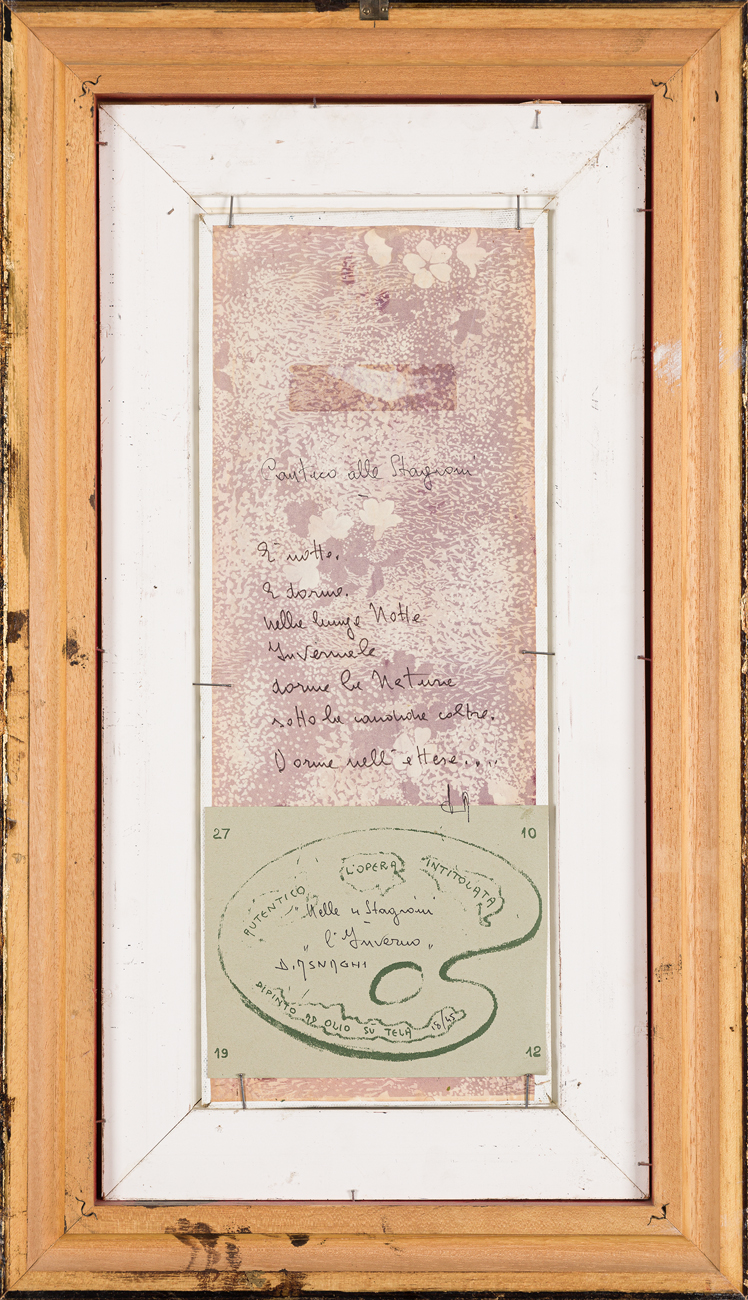 Cantico alle Stagioni
E' notte.
E dorme.
nella lunga Notte
Invernale
dorme la Natura
sotto la candida coltre.
Dorme nell'ettere....
27
10
AUTENTICO
L'OPERA
INTITOLATA
"Nelle 4 Stagioni
"l'Inverno"
D. ASNAGHI
DIPINTO AD OLIO SU TELA 18/45
19
12